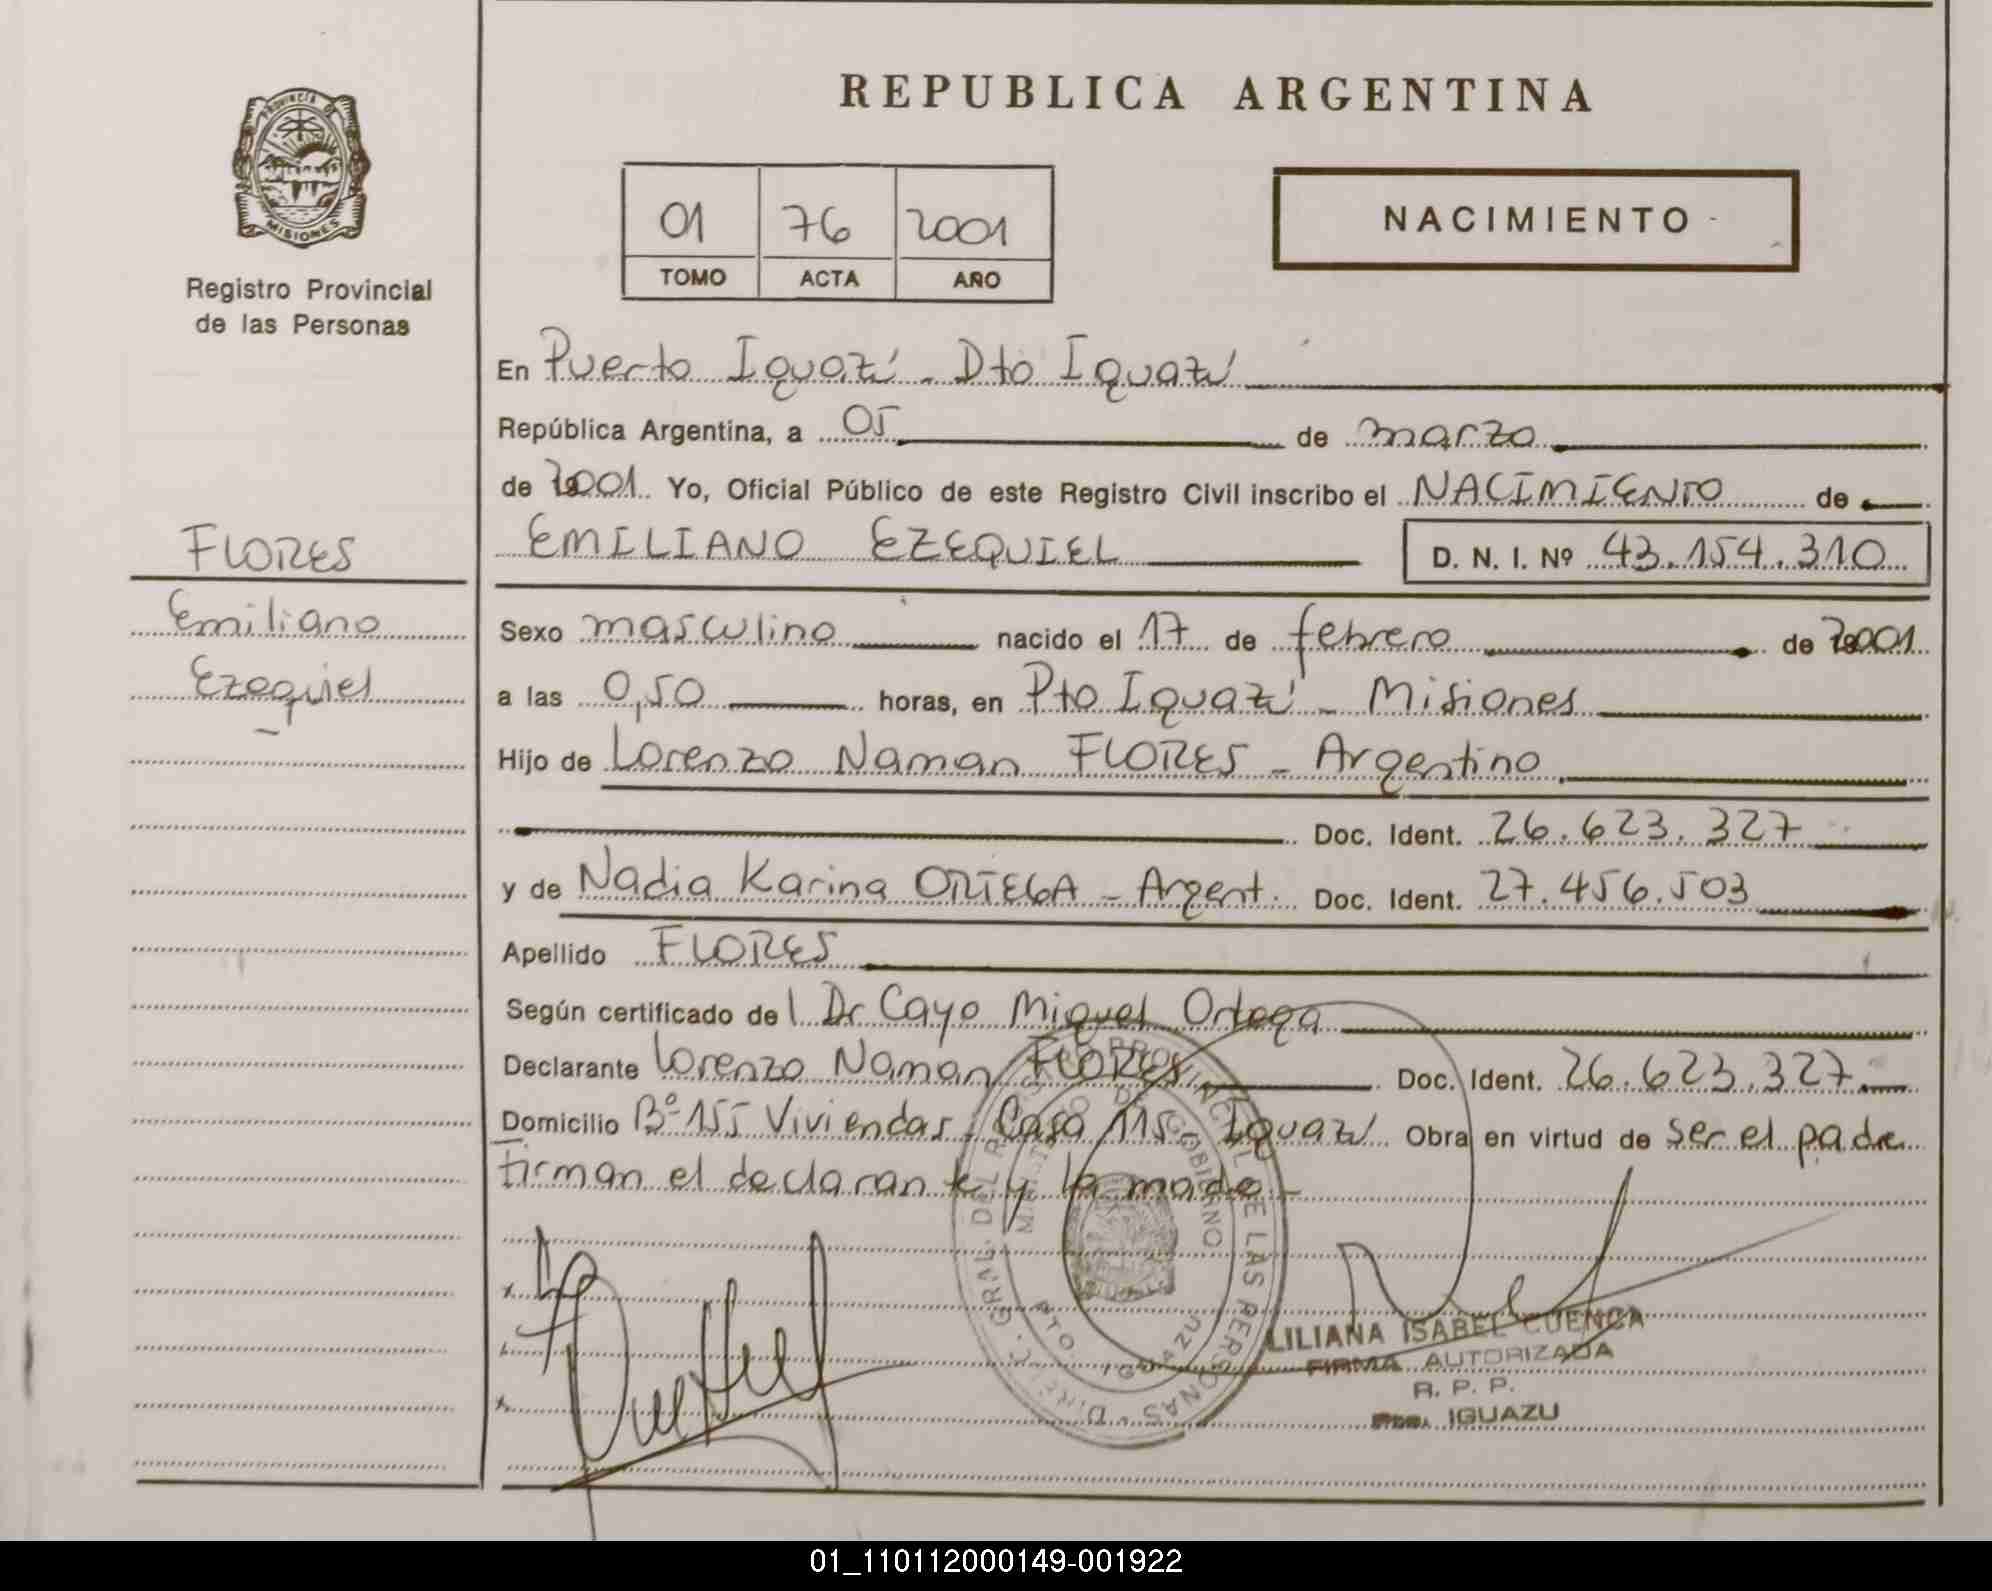 PROVINCIA DE
MISIONES
Registro Provincial
de las Personas
FLORES
Emiliano
Ezequiel
REPUBLICA ARGENTINA
01 76 2001
TOMO ACTA AÑO
NACIMIENTO
En Puerto Iguazú - Dto Iguazú
República Argentina, a 05 de marzo
de 2001. Yo, Oficial Público de este Registro Civil inscribo el NACIMIENTO de
EMILIANO EZEQUIEL D. N. I. Nº 43.154.310
Sexo masculino nacido el 17 de febrero de 2001
a las 0,50 horas, en Pto Iguazú - Misiones
Hijo de Lorenzo Naman FLORES - Argentino
Doc. Ident. 26.623.327
y de Nadia Karina ORTEGA - Argent. Doc. Ident. 27.456.503
Apellido FLORES
Según certificado del Dr Cayo Miguel Ortega
Declarante Lorenzo Naman FLORES Doc. Ident. 26.623.327
Domicilio Bº 155 Viviendas - Casa 115 - Iguazú Obra en virtud de ser el padre
firman el declarante y la madre -
DIREC. GRAL. DEL REGISTRO PROVINCIAL DE LAS PERSONAS
MINISTERIO DE GOBIERNO
PTO. IGUAZU
LILIANA ISABEL CUENCA
FIRMA AUTORIZADA
R. P. P.
Pto. IGUAZU
01_110112000149-001922